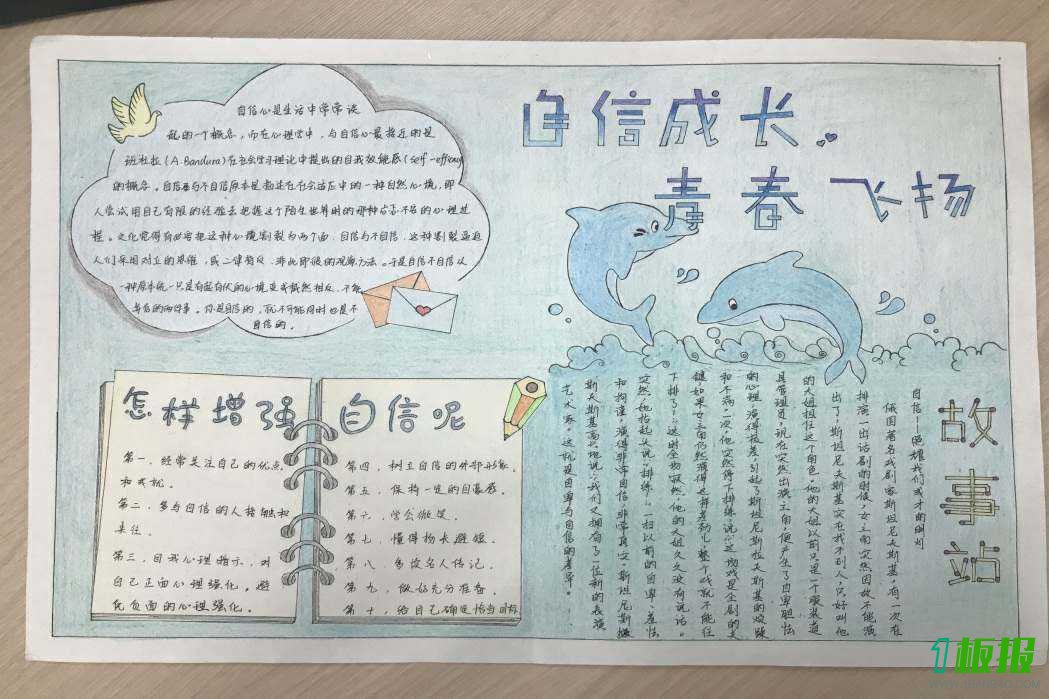 自信成长
青春飞扬
自信心是生活中常常谈
起的一个概念，而在心理学中，与自信心最接近的是
班杜拉（A.Bandura）在社会学习理论中提出的自我效能感（self-efficacy
的概念。自信与不自信原本是描述在社会适应中的一种自然心境，即
人尝试用自己有限的经验去把握这个陌生世界时的那种忐忑不安的心理过
程。文化觉得有必要把这种心境割裂为两个面，自信与不自信，这种割裂逼迫
人们采用对立的思维，或二律背反，非此即彼的观察方法。于是自信不自信从
一种原本统一只是有起有伏的心境变成截然相反，不能
共存的两件事。你是自信的，就不可能同时也是不
自信的。
怎样增强自信呢
第一，经常关注自己的优点
和成就。
第二，多与自信的人接触和
来往。
第三，自我心理暗示，对
自己正面心理强化，避
免负面的心理强化。
第四，树立自信的外部形象。
第五，保持一定的自豪感。
第六，学会微笑。
第七，懂得扬长避短。
第八，多读名人传记。
第九，做好充分准备。
第十，给自己确定恰当目标
故事站
自信——照耀我们成才的明灯
俄国著名戏剧家斯坦尼夫斯基，有一次在
排演一出话剧的时候，女主角突然因故不能演
出了，斯坦尼夫斯基实在找不到人，只好叫他
的大姐担任这个角色。他的大姐以前只是一个服装道
具管理员，现在突然出演主角，便产生了自卑胆怯
的心理，演得极差，引起了斯坦尼斯拉夫斯基的烦躁
和不满。一次，他突然停下排练，说：“这场戏是全剧的关
键，如果女主角仍然演得这样差劲儿，整个戏就不能往
下排了！”这时全场寂然，他的大姐久久没有说话。
突然，她抬起头说：“排练！”一扫以前的自卑、羞怯
和拘谨，演得非常自信，非常真实。斯坦尼斯拉
斯夫斯基高兴地说：“我们又拥有了一位新的表演
艺术家。”这就是自卑与自信的差异。
1板报
WWW.1BANBAO.COM